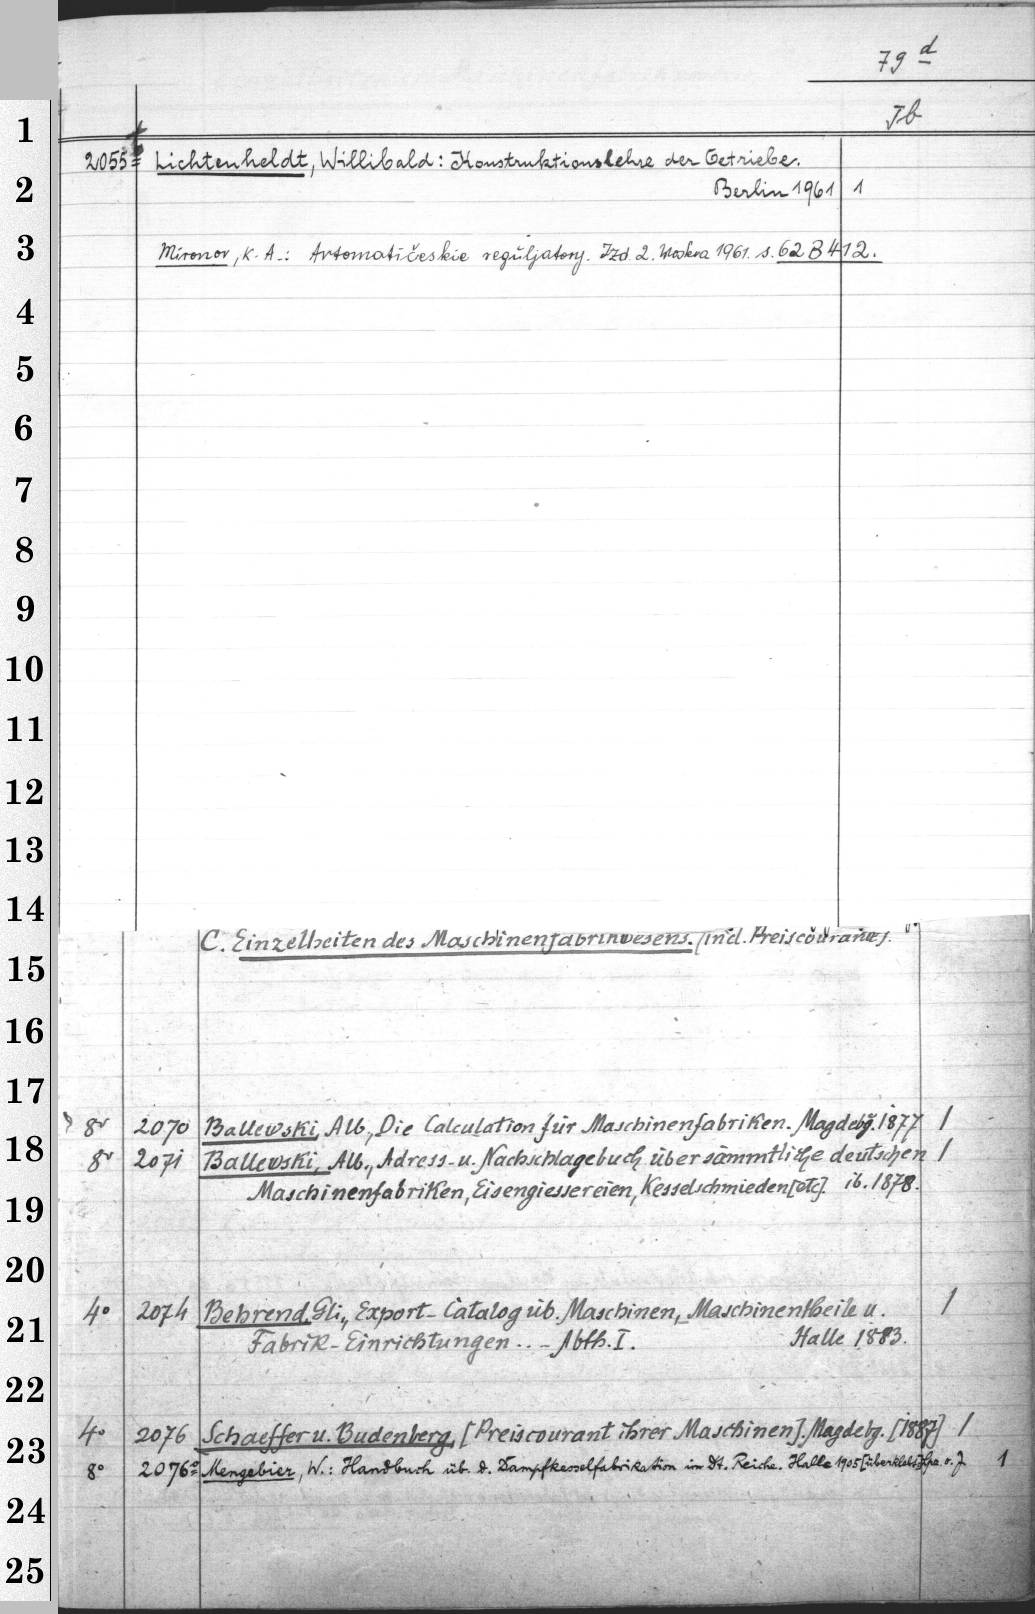 79 d
Jb
1
2055 Lichtenheldt, Willibald: Konstruktionslehre der Getriebe.
2 Berlin 1961 1
3 Mironov, K. A.: Avtomatičeskie reguljatory. Izd 2. Moskva 1961. s. 62 B 412.
4
5
6
7
8
9
10
11
12
13
14
C. Einzelheiten des Maschinenfabrikwesens. [incl. Preiscourante].
15
16
17
8v 2070 Ballewski, Alb., Die Calculation für Maschinenfabriken. Magdebg. 1877 1
18 8v 2071 Ballewski, Alb., Adress- u. Nachschlagebuch über sämmtliche deutschen 1
19 Maschinenfabriken, Eisengiessereien, Kesselschmieden [etc]. ib. 1878.
20
4° 2074 Behrend, Gli., Export-Catalog üb. Maschinen, Maschinentheile u. 1
21 Fabrik-Einrichtungen .. - Abth. I. Halle 1883.
22
4° 2076 Schaeffer u. Budenberg, [Preiscourant ihrer Maschinen]. Magdebg. [1887] 1
23
8° 2076a Mengebier, W.: Handbuch üb. d. Dampfkesselfabrikation im Dt. Reiche. Halle 1905 [überklebt: o. J 1
24
25